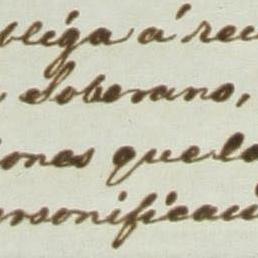 obliga á rec
Soberano,
iones que la
ersonificaci